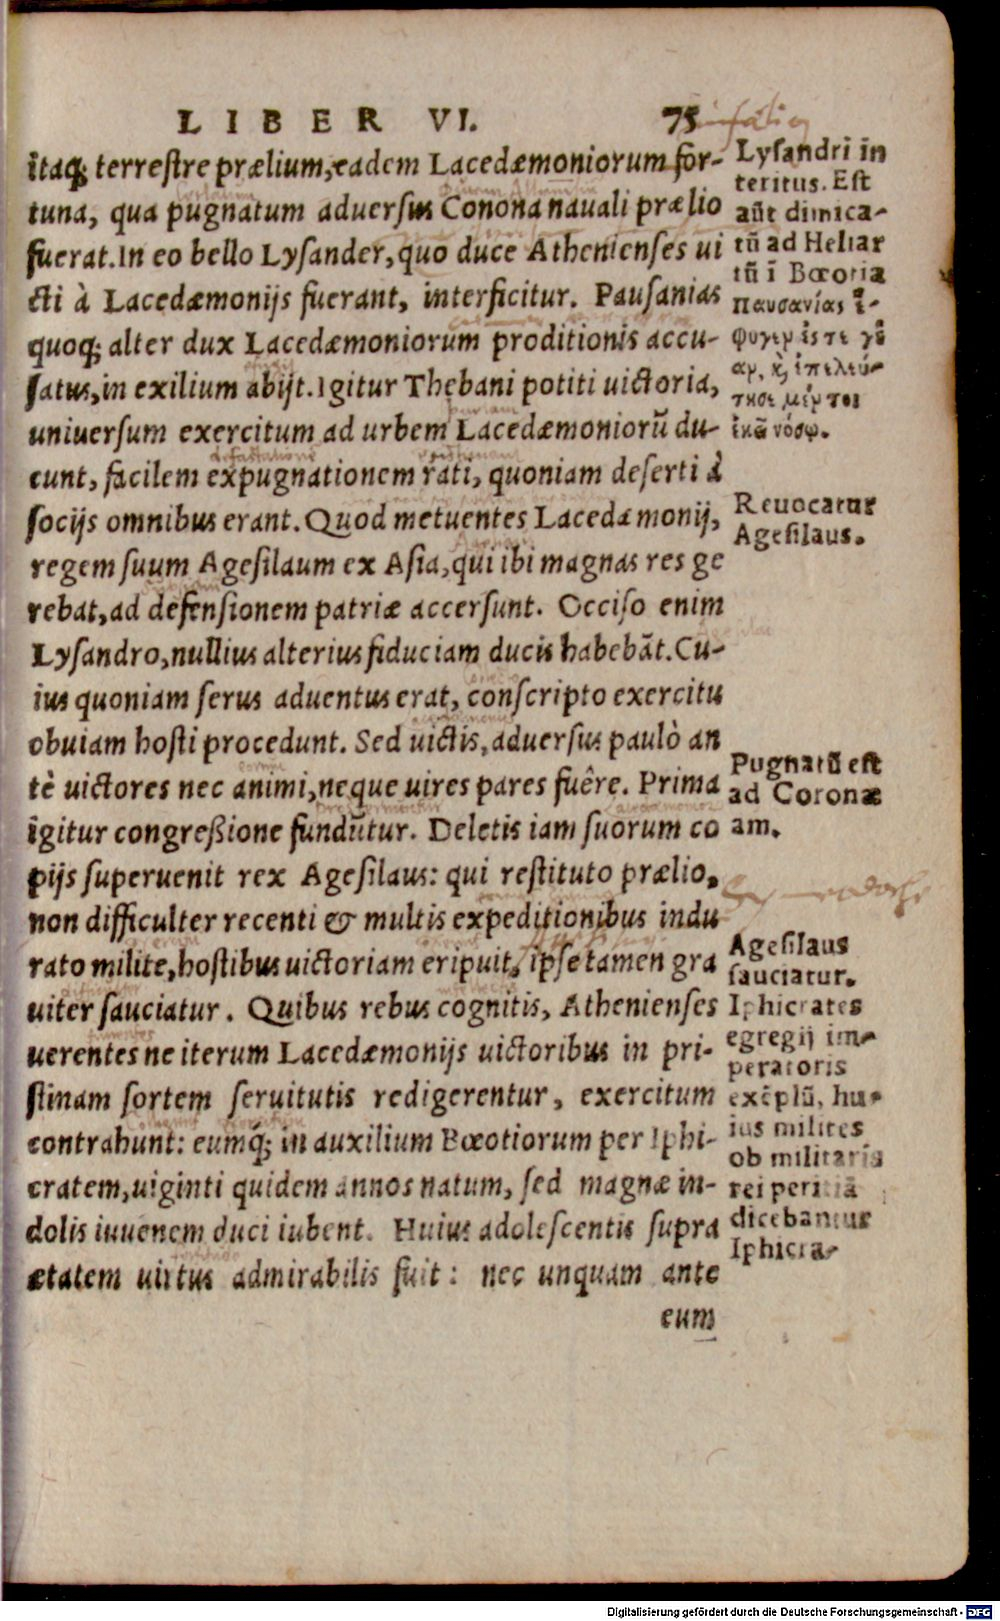 LIBER VI. 75
itaq; terrestre prælium, eadem Lacedæmoniorum for-
tuna, qua pugnatum aduersus Conona nauali prælio
fuerat. In eo bello Lysander, quo duce Athenienses ui
cti à Lacedæmonijs fuerant, interficitur. Pausanias
quoq; alter dux Lacedæmoniorum proditionis accu-
satus, in exilium abijt. Igitur Thebani potiti uictoria,
uniuersum exercitum ad urbem Lacedæmoniorũ du-
cunt, facilem expugnationem rati, quoniam deserti à
socijs omnibus erant. Quod metuentes Lacedæmonij,
regem suum Agesilaum ex Asia, qui ibi magnas res ge
rebat, ad defensionem patriæ accersunt. Occiso enim
Lysandro, nullius alterius fiduciam ducis habebãt. Cu-
ius quoniam serus aduentus erat, conscripto exercitu
obuiam hosti procedunt. Sed uictis, aduersus paulò an
tè uictores nec animi, neque uires pares fuêre. Prima
igitur congreßione fundũtur. Deletis iam suorum co
pijs superuenit rex Agesilaus: qui restituto prælio,
non difficulter recenti & multis expeditionibus indu
rato milite, hostibus uictoriam eripuit, ipse tamen gra
uiter sauciatur. Quibus rebus cognitis, Athenienses
uerentes ne iterum Lacedæmonijs uictoribus in pri-
stinam sortem seruitutis redigerentur, exercitum
contrahunt: eumq́; in auxilium Bœotiorum per Iphi-
cratem, uiginti quidem annos natum, sed magnæ in-
dolis iuuenem duci iubent. Huius adolescentis supra
ætatem uirtus admirabilis fuit: nec unquam ante
eum
Lysandri in
teritus. Est
aũt dimica-
tũ ad Heliar
tũ ĩ Bœotia
Παυσανίας
Reuocatur
Agesilaus.
Pugnatũ est
ad Coronæ
am.
Agesilaus
sauciatur.
Iphicrates
egregij im-
peratoris
exẽplũ, hu-
ius milites
ob militaris
rei peritiã
dicebantur
Iphicra-
Digitalisierung gefördert durch die Deutsche Forschungsgemeinschaft - DFG